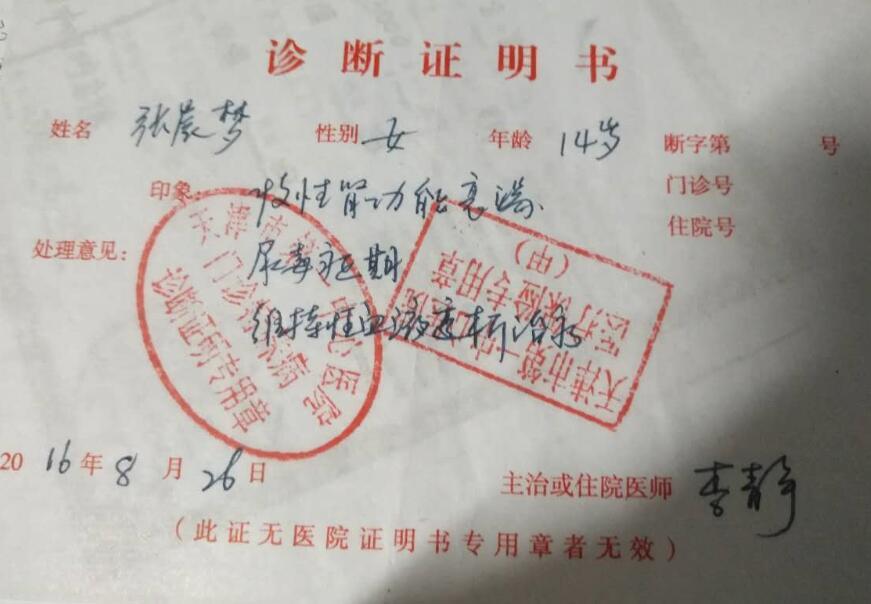 诊断证明书
姓名 张晨梦 性别 女 年龄 14岁 断字第 号
门诊号
印象: 慢性肾功能衰竭
住院号
处理意见: 尿毒症期
维持性血液透析治疗
天津市第一中心医院
门诊
诊断证明专用章
天津市第一中心医院
医疗保险专用章
(甲)
2016年8月26日
主治或住院医师 李静
(此证无医院证明书专用章者无效)